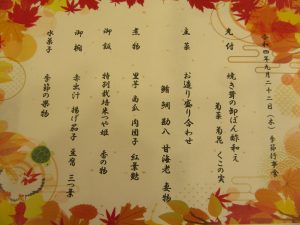 令和四年九月二十二日（木） 季節行事食
先付 焼き茸の卸ぽん酢和え
菊菜 菊花 くこの実
主菜 お造り盛り合わせ
鮪 鯛 勘八 甘海老 妻物
煮物 里芋 南瓜 肉団子 紅葉麩
御飯 特別栽培米つや姫 香の物
御椀 赤出汁 揚げ茄子 豆腐 三つ葉
水菓子 季節の果物